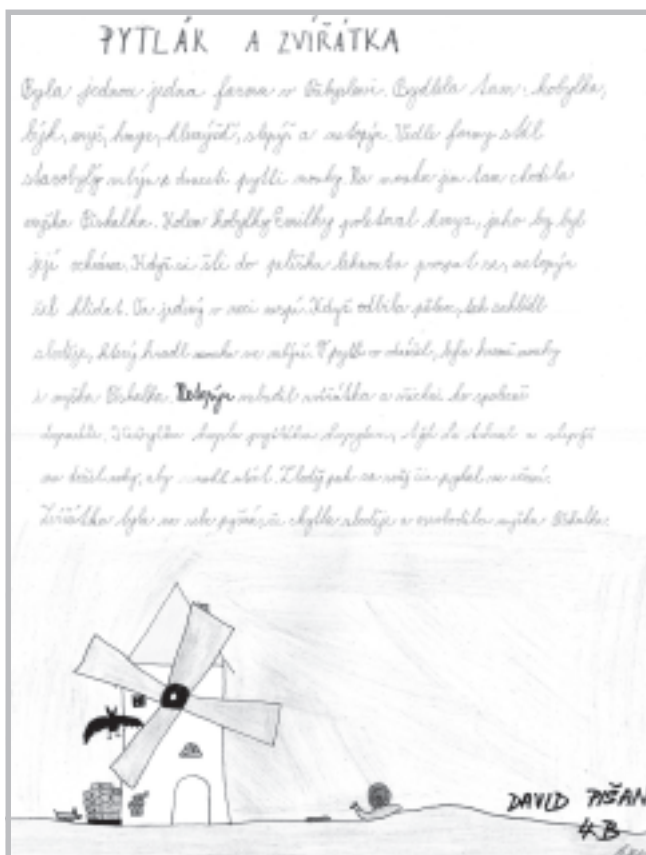 PYTLÁK A ZVÍŘÁTKA
Byla jednou jedna farma v Přibyslavi. Bydlela tam: kobylka,
býk, myš, hmyz, hlemýžď, slepýš a netopýr. Vedle farmy stál
starobylý mlýn s dvaceti pytli mouky. Na mouku jim tam chodila
myška Pískalka. Kolem kobylky Emilky poletoval hmyz, jako by byl
její ochrana. Když si šli do pelíšku lehnout a pospat se, netopýr
šel hlídat. On jediný v noci nespí. Když odbila půlnoc, tak zahlédl
zloděje, který kradl mouku ve mlýně. V pytli co odnášel, byla kromě mouky
i myška Pískalka. Netopýr vzbudil zvířátka a všichni ho společně
dopadli. kopla pytláka kopytem, býk ho a slepýš
mu nohy, aby nemohl utéct. Zloděj pak za svůj čin pykal ve vězení.
Zvířátka byla na sebe pyšná, že chytla zloděje a osvobodila myšku Pískalku.
DAVID PIŠAN
4.B